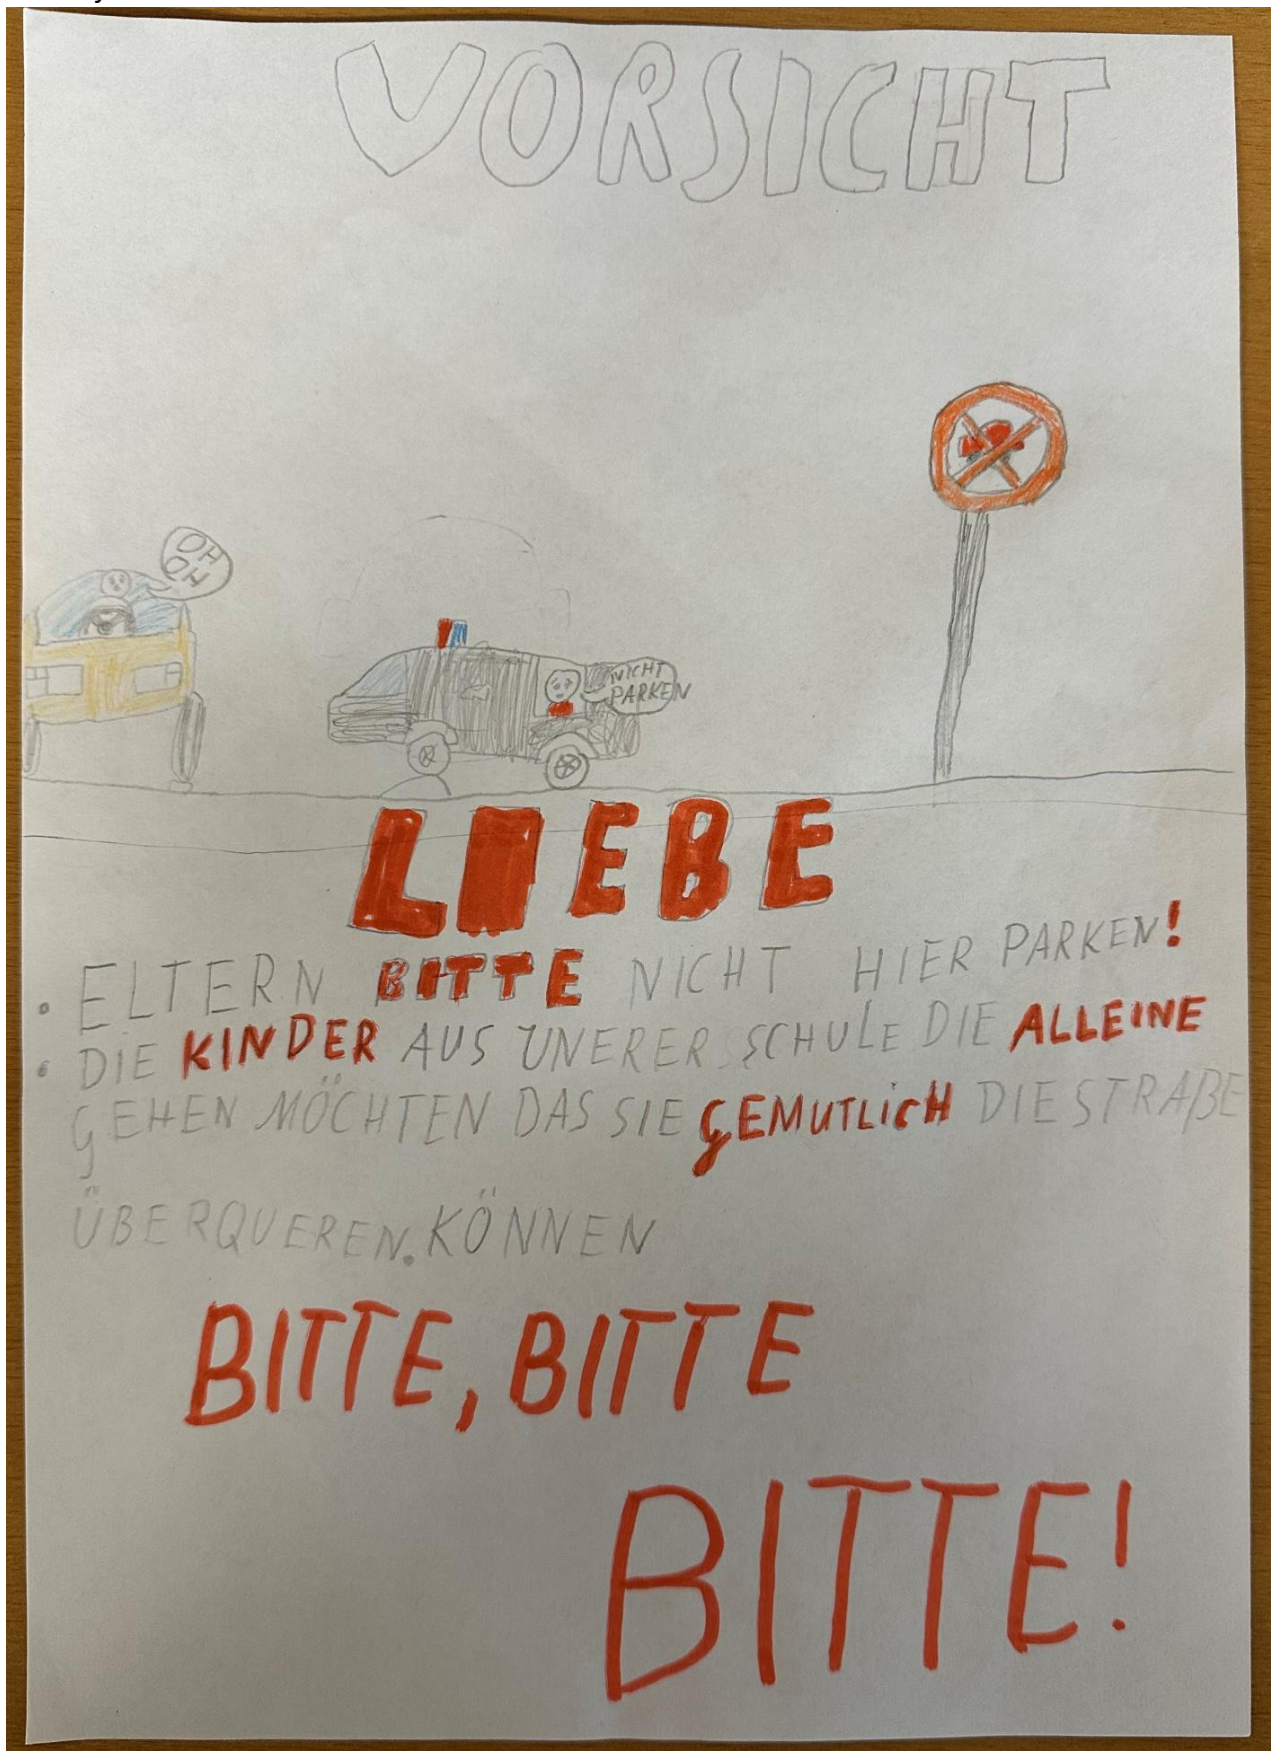 VORSICHT
OH
OH
NICHT
PARKEN
LIEBE
• ELTERN BITTE NICHT HIER PARKEN!
• DIE KINDER AUS UNERER SCHULE DIE ALLEINE
GEHEN MÖCHTEN DAS SIE GEMUTLICH DIE STRAßE
ÜBERQUEREN. KÖNNEN
BITTE, BITTE
BITTE!